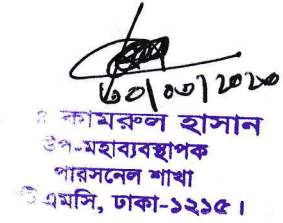 ৩০/০৩/২০২০
কামরুল হাসান
উপ-মহাব্যবস্থাপক
পারসনেল শাখা
এমসি, ঢাকা-১২১৫।